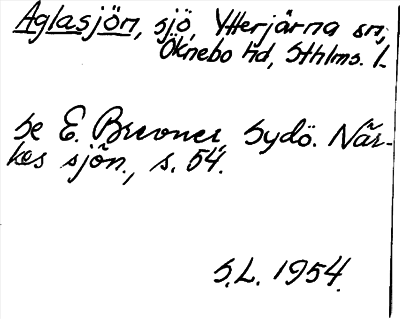 Aglasjön, sjö, Ytterjärna sn,
Öknebo hd, Sthlms. l.
se E. Brevner, Sydö. När-
kes sjön., s. 54.
S.L. 1954.